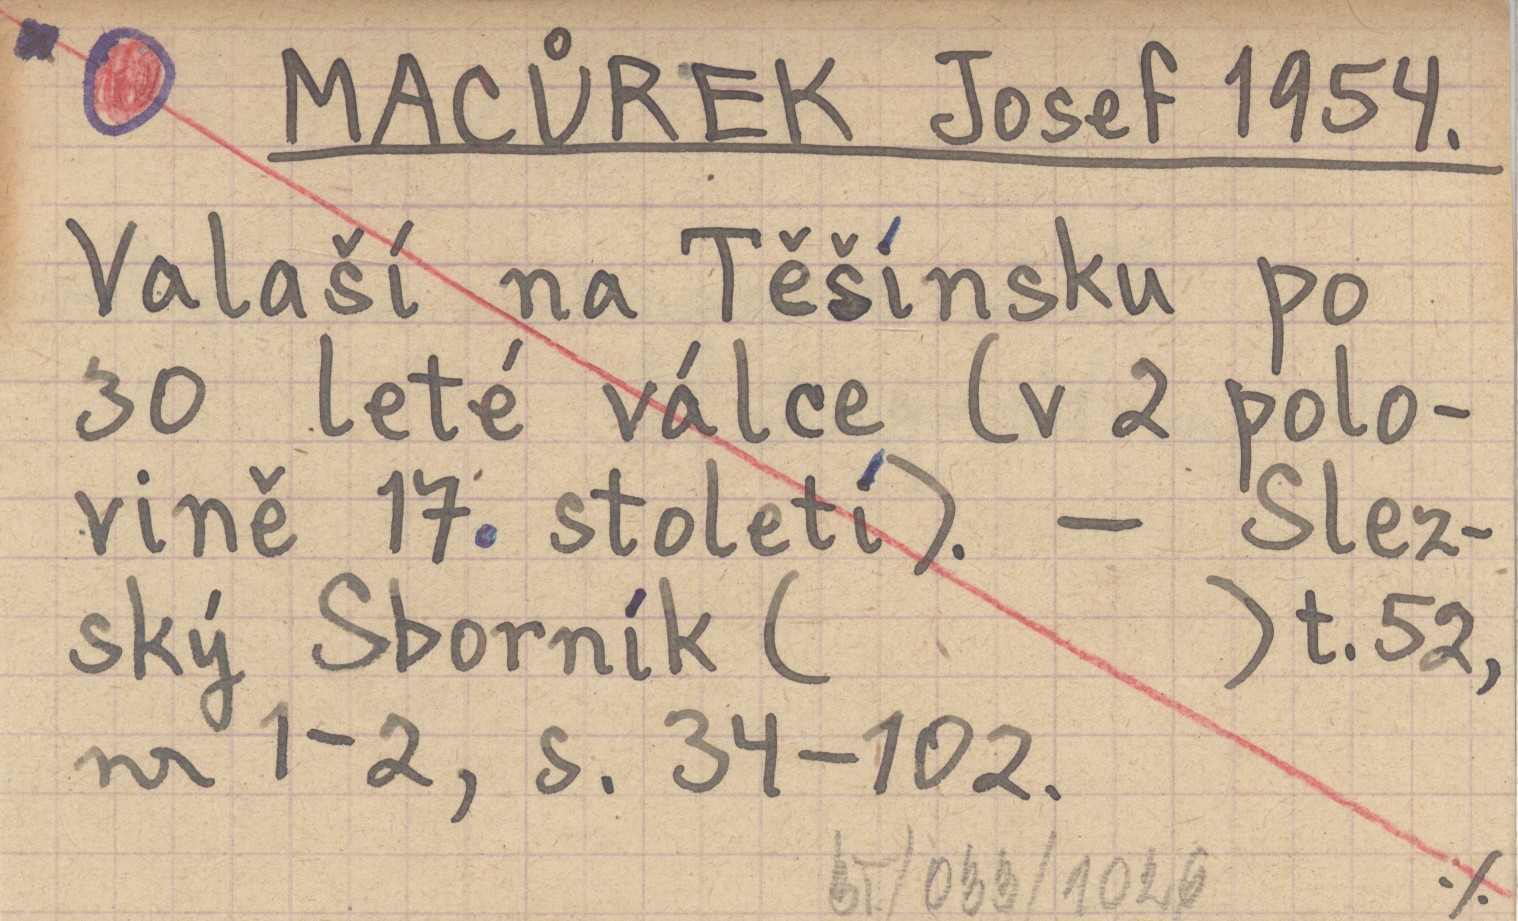 MACŮREK Josef 1954.
Valaší na Těšínsku po
30 leté válce (v 2 polo-
vině 17. století). — Slez-
ský Sborník ( ) t. 52,
nr 1-2, s. 34-102.
·/.